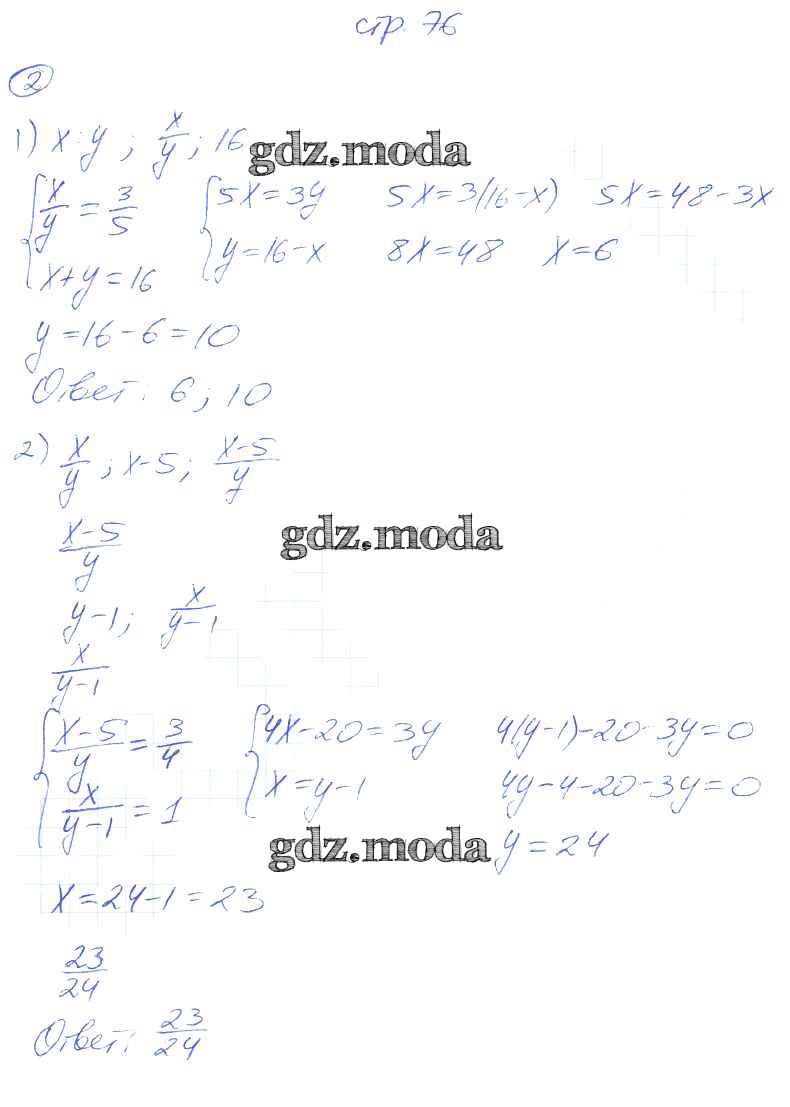 стр. 76
2
1) x : y ; x/y ; 16
gdz.moda
{ x/y = 3/5 { 5x = 3y 5x = 3(16-x) 5x = 48-3x
x+y = 16 y = 16-x 8x = 48 x = 6
y = 16-6 = 10
Ответ: 6; 10
2) x/y ; x-5 ; (x-5)/y
(x-5)/y
gdz.moda
y-1; x/(y-1)
x/(y-1)
{ (x-5)/y = 3/4 { 4x-20 = 3y 4(y-1)-20-3y = 0
x/(y-1) = 1 x = y-1 4y-4-20-3y = 0
gdz.moda y = 24
x = 24-1 = 23
23/24
Ответ: 23/24